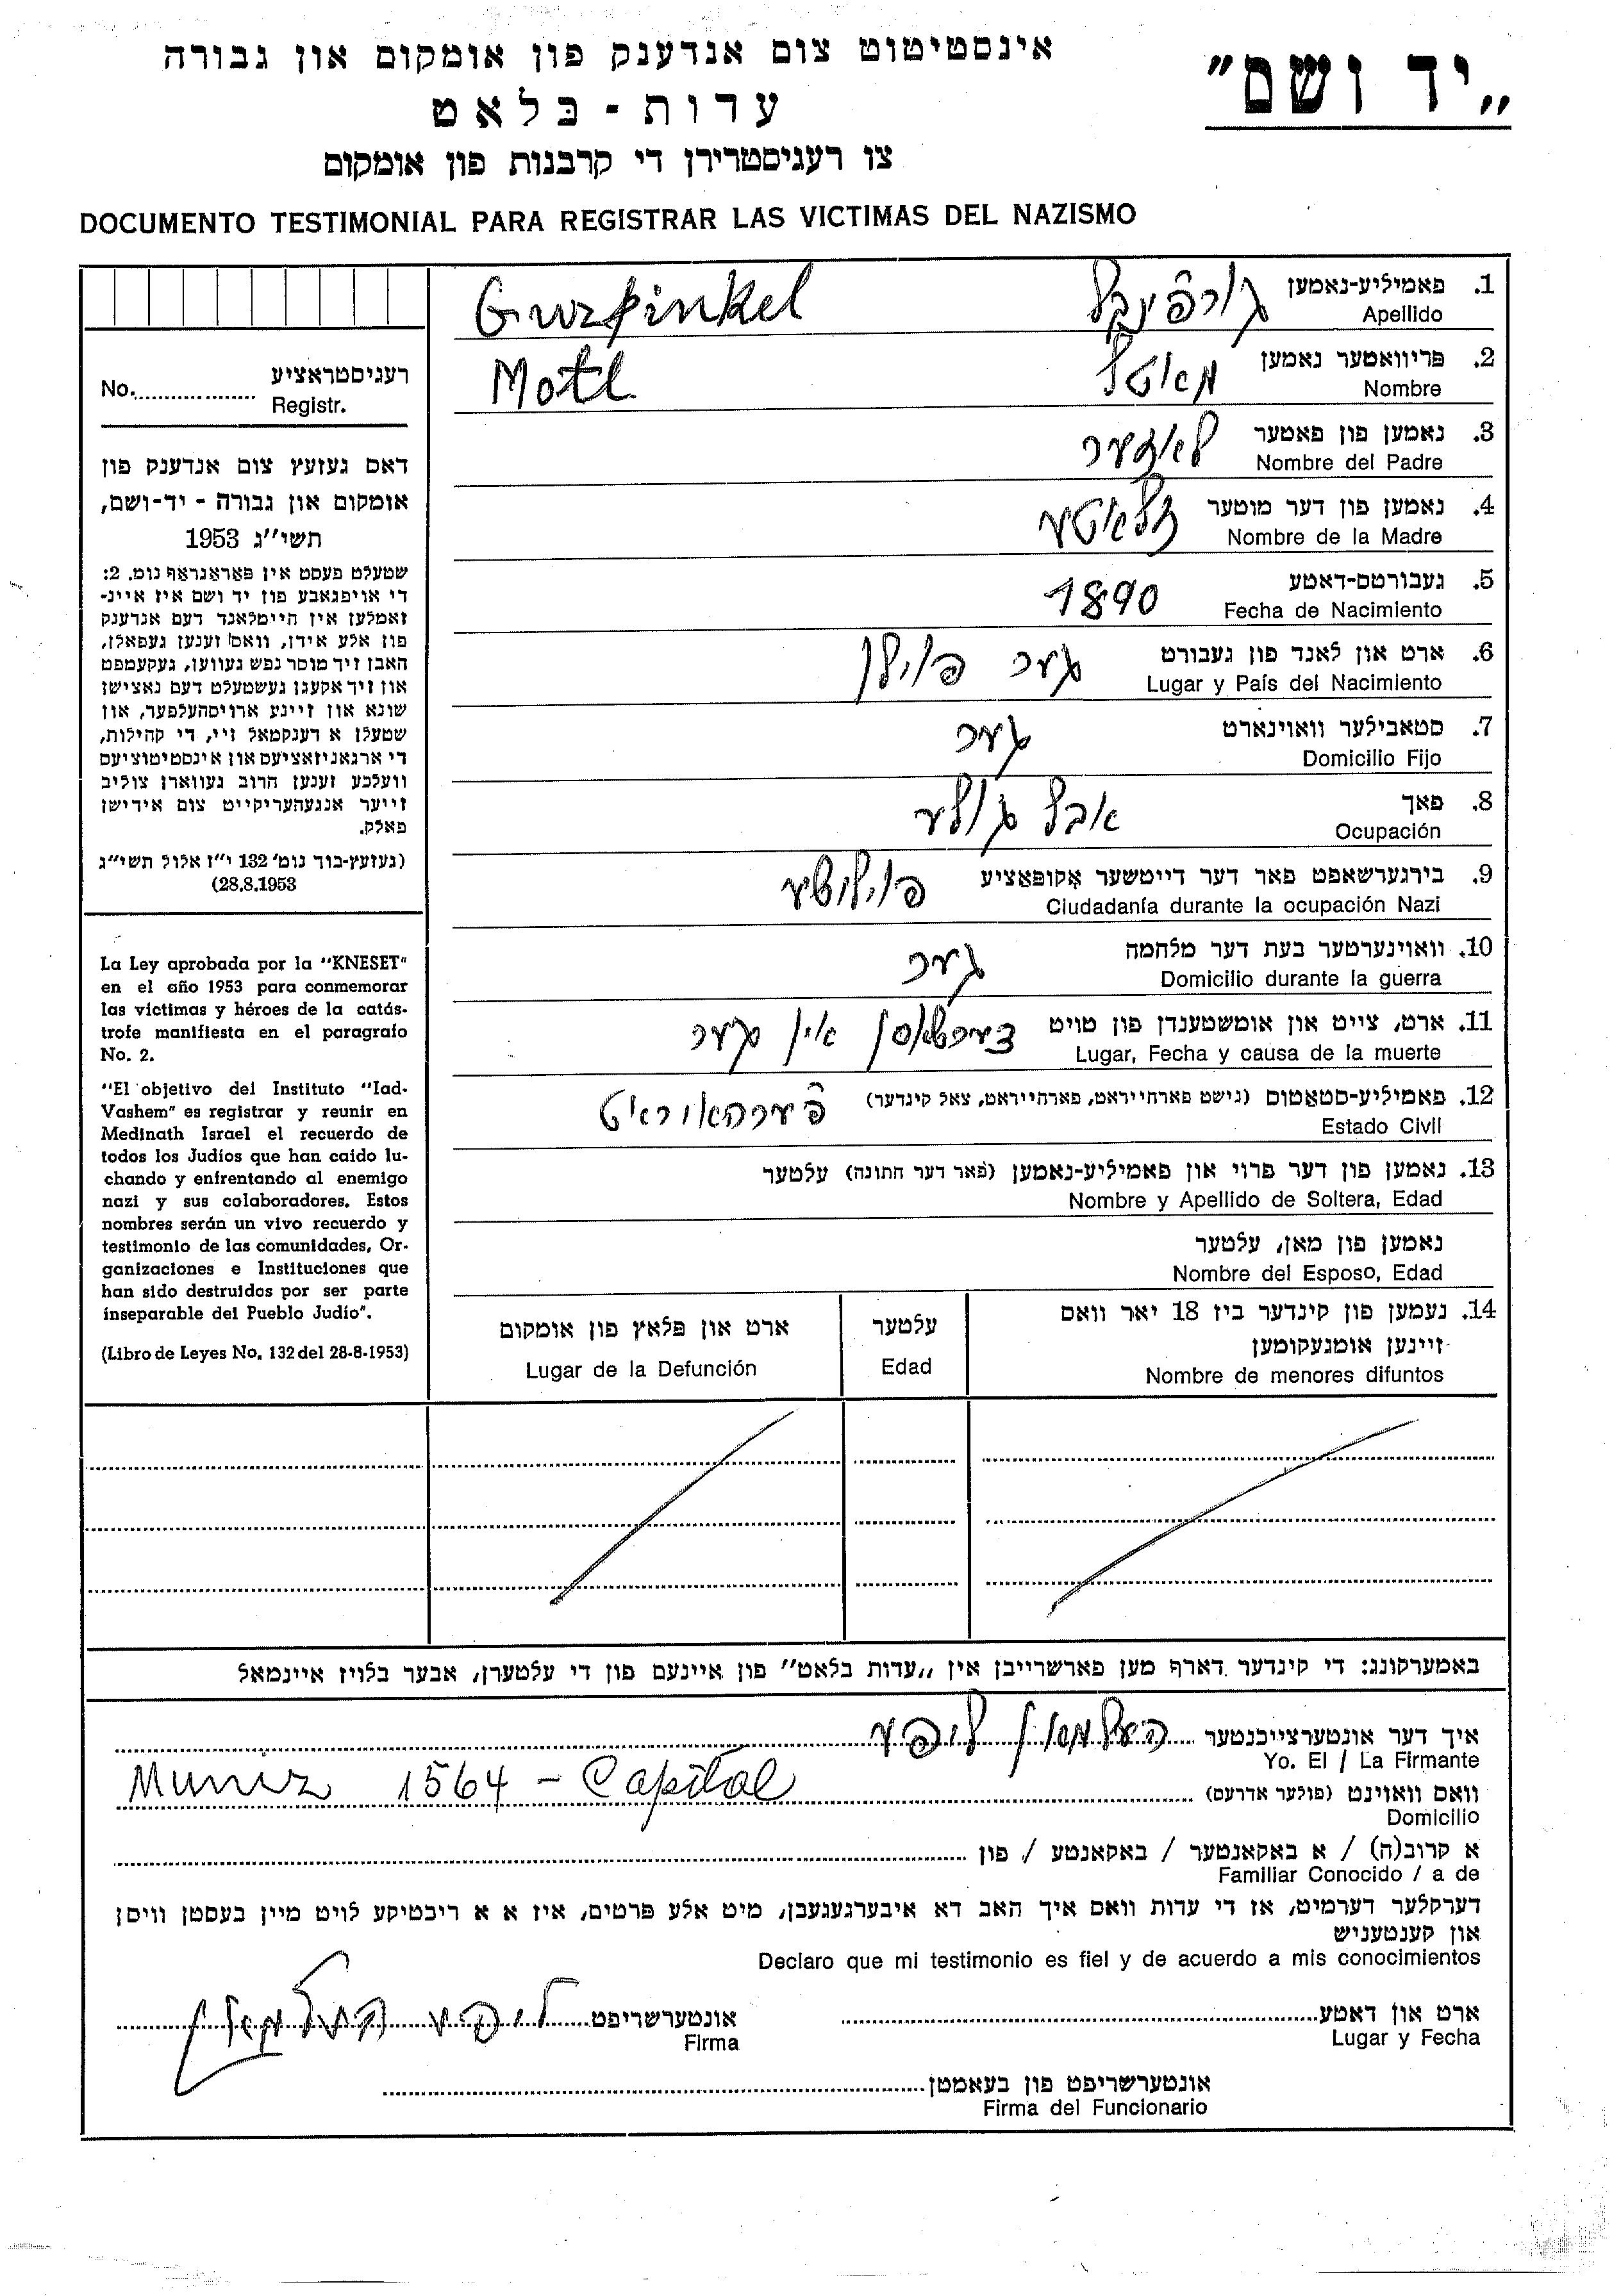 „יד ושם”
אינסטיטוט צום אנדענק פון אומקום און גבורה
עדות - בלאט
צו רעגיסטרירן די קרבנות פון אומקום
DOCUMENTO TESTIMONIAL PARA REGISTRAR LAS VICTIMAS DEL NAZISMO
1. פאמיליע-נאמען גורפינקל Gurfinkel
Apellido
2. פריוואטער נאמען מאטל Motl
Nombre
3. נאמען פון פאטער לאזער
Nombre del Padre
4. נאמען פון דער מוטער זלאטע
Nombre de la Madre
5. געבורטס-דאטע 1890
Fecha de Nacimiento
6. ארט און לאנד פון געבורט גער פוילן
Lugar y País del Nacimiento
7. סטאבילער וואוינארט גער
Domicilio Fijo
8. פאך
Ocupación
9. בירגערשאפט פאר דער דייטשער אָקופּאַציע פוילישע
Ciudadanía durante la ocupación Nazi
10. וואוינערטער בעת דער מלחמה גער
Domicilio durante la guerra
11. ארט, צייט און אומשטענדן פון טויט אין גער
Lugar, Fecha y causa de la muerte
12. פאמיליע-סטאטוס (נישט פארהייראט, פארהייראט, צאל קינדער)
Estado Civil
13. נאמען פון דער פרוי און פאמיליע-נאמען (פאר דער חתונה) עלטער
Nombre y Apellido de Soltera, Edad
נאמען פון מאן, עלטער
Nombre del Esposo, Edad
14. נעמען פון קינדער ביז 18 יאר וואס
זיינען אומגעקומען
Nombre de menores difuntos
עלטער
Edad
ארט און פלאץ פון אומקום
Lugar de la Defunción
רעגיסטראציע
No. Registr.
דאס געזעץ צום אנדענק פון
אומקום און גבורה - יד-ושם,
תשי''ג 1953
שטעלט פעסט אין פאראגראף נומ. 2:
די אויפגאבע פון יד ושם איז איינ-
זאמלען אין היימלאנד דעם אנדענק
פון אלע אידן, וואס זענען געפאלן,
האבן זיך מוסר נפש געווען, געקעמפט
און זיך אקעגן געשטעלט דעם נאצישן
שונא און זיינע ארויסהעלפער, און
שטעלן א דענקמאל זיי, די קהילות,
די ארגאניזאציעס און אינסטיטוציעס
וועלכע זענען הרוב געווארן צוליב
זייער אנגעהעריקייט צום אידישן
פאלק.
(געזעץ-בוך נומ' 132 י''ז אלול תשי''ג
28.8.1953)
La Ley aprobada por la "KNESET"
en el año 1953 para conmemorar
las víctimas y héroes de la catás-
trofe manifiesta en el paragrafo
No. 2.
"El objetivo del Instituto "Iad-
Vashem" es registrar y reunir en
Medinath Israel el recuerdo de
todos los Judíos que han caido lu-
chando y enfrentando al enemigo
nazi y sus colaboradores. Estos
nombres serán un vivo recuerdo y
testimonio de las comunidades, Or-
ganizaciones e Instituciones que
han sido destruidos por ser parte
inseparable del Pueblo Judío".
(Libro de Leyes No. 132 del 28-8-1953)
באמערקונג: די קינדער דארף מען פארשרייבן אין „עדות בלאט” פון איינעם פון די עלטערן, אבער בלויז איינמאל
איך דער אונטערצייכנטער העלמאן ליפע
Yo. El / La Firmante
וואס וואוינט (פולער אדרעס) Muniz 1564 - Capital
Domicilio
א קרוב(ה) / א באקאנטער / באקאנטע / פון
Familiar Conocido / a de
דערקלער דערמיט, אז די עדות וואס איך האב דא איבערגעגעבן, מיט אלע פרטים, איז א א ריכטיקע לויט מיין בעסטן וויסן
און קענטעניש
Declaro que mi testimonio es fiel y de acuerdo a mis conocimientos
ארט און דאטע אונטערשריפט ליפע העלמאן
Lugar y Fecha Firma
אונטערשריפט פון בעאמטן
Firma del Funcionario